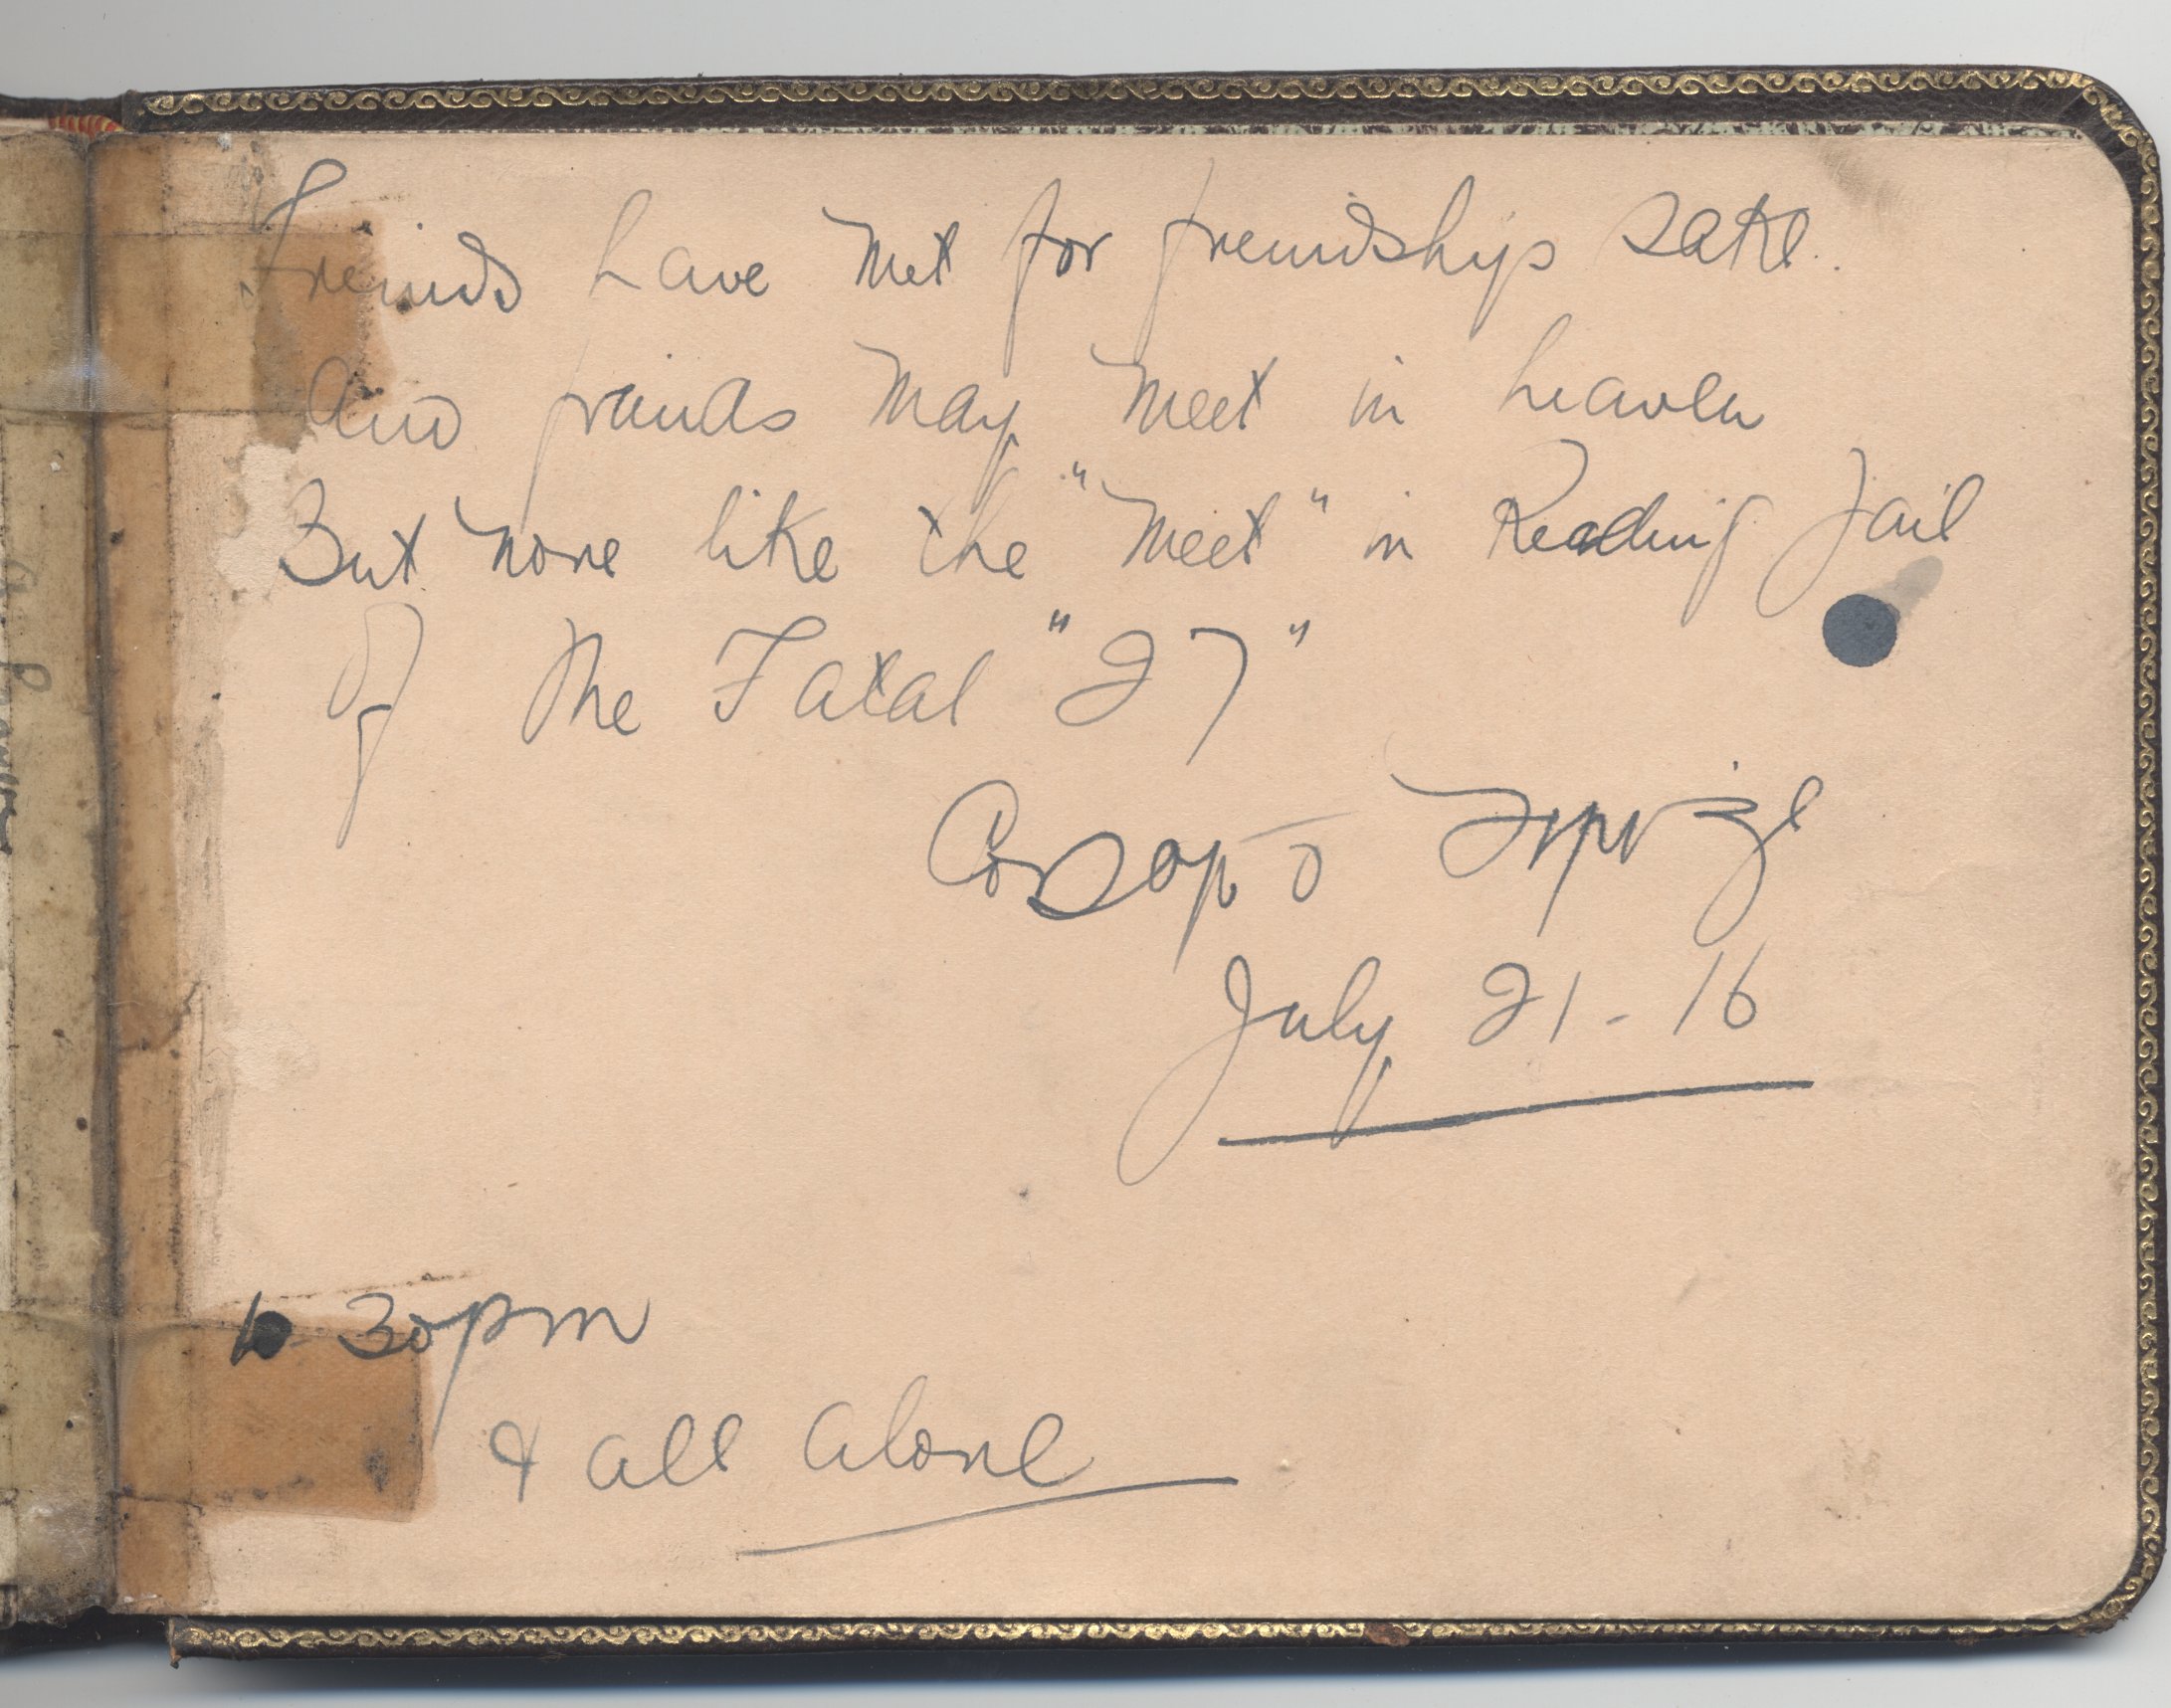 Freinds have met for freindships sake.
And freinds may meet in heaven
But none like the "meet" in Reading Jail
of the Fatal "27"
July 21-16
30pm
& all alone